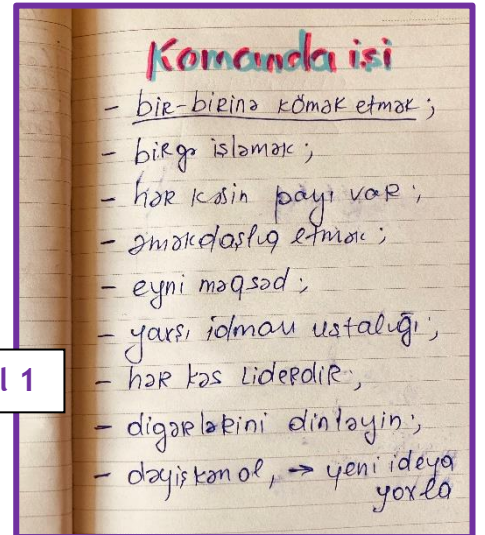 Komanda işi
- bir-birinə kömək etmək;
- birgə işləmək;
- hər kəsin payı var;
- əməkdaşlıq etmək;
- eyni məqsəd;
- yarşı idman ustalığı;
- hər kəs liderdir;
- digərlərini dinləyin;
- dəyişkən ol, → yeni ideya
yoxla
l 1